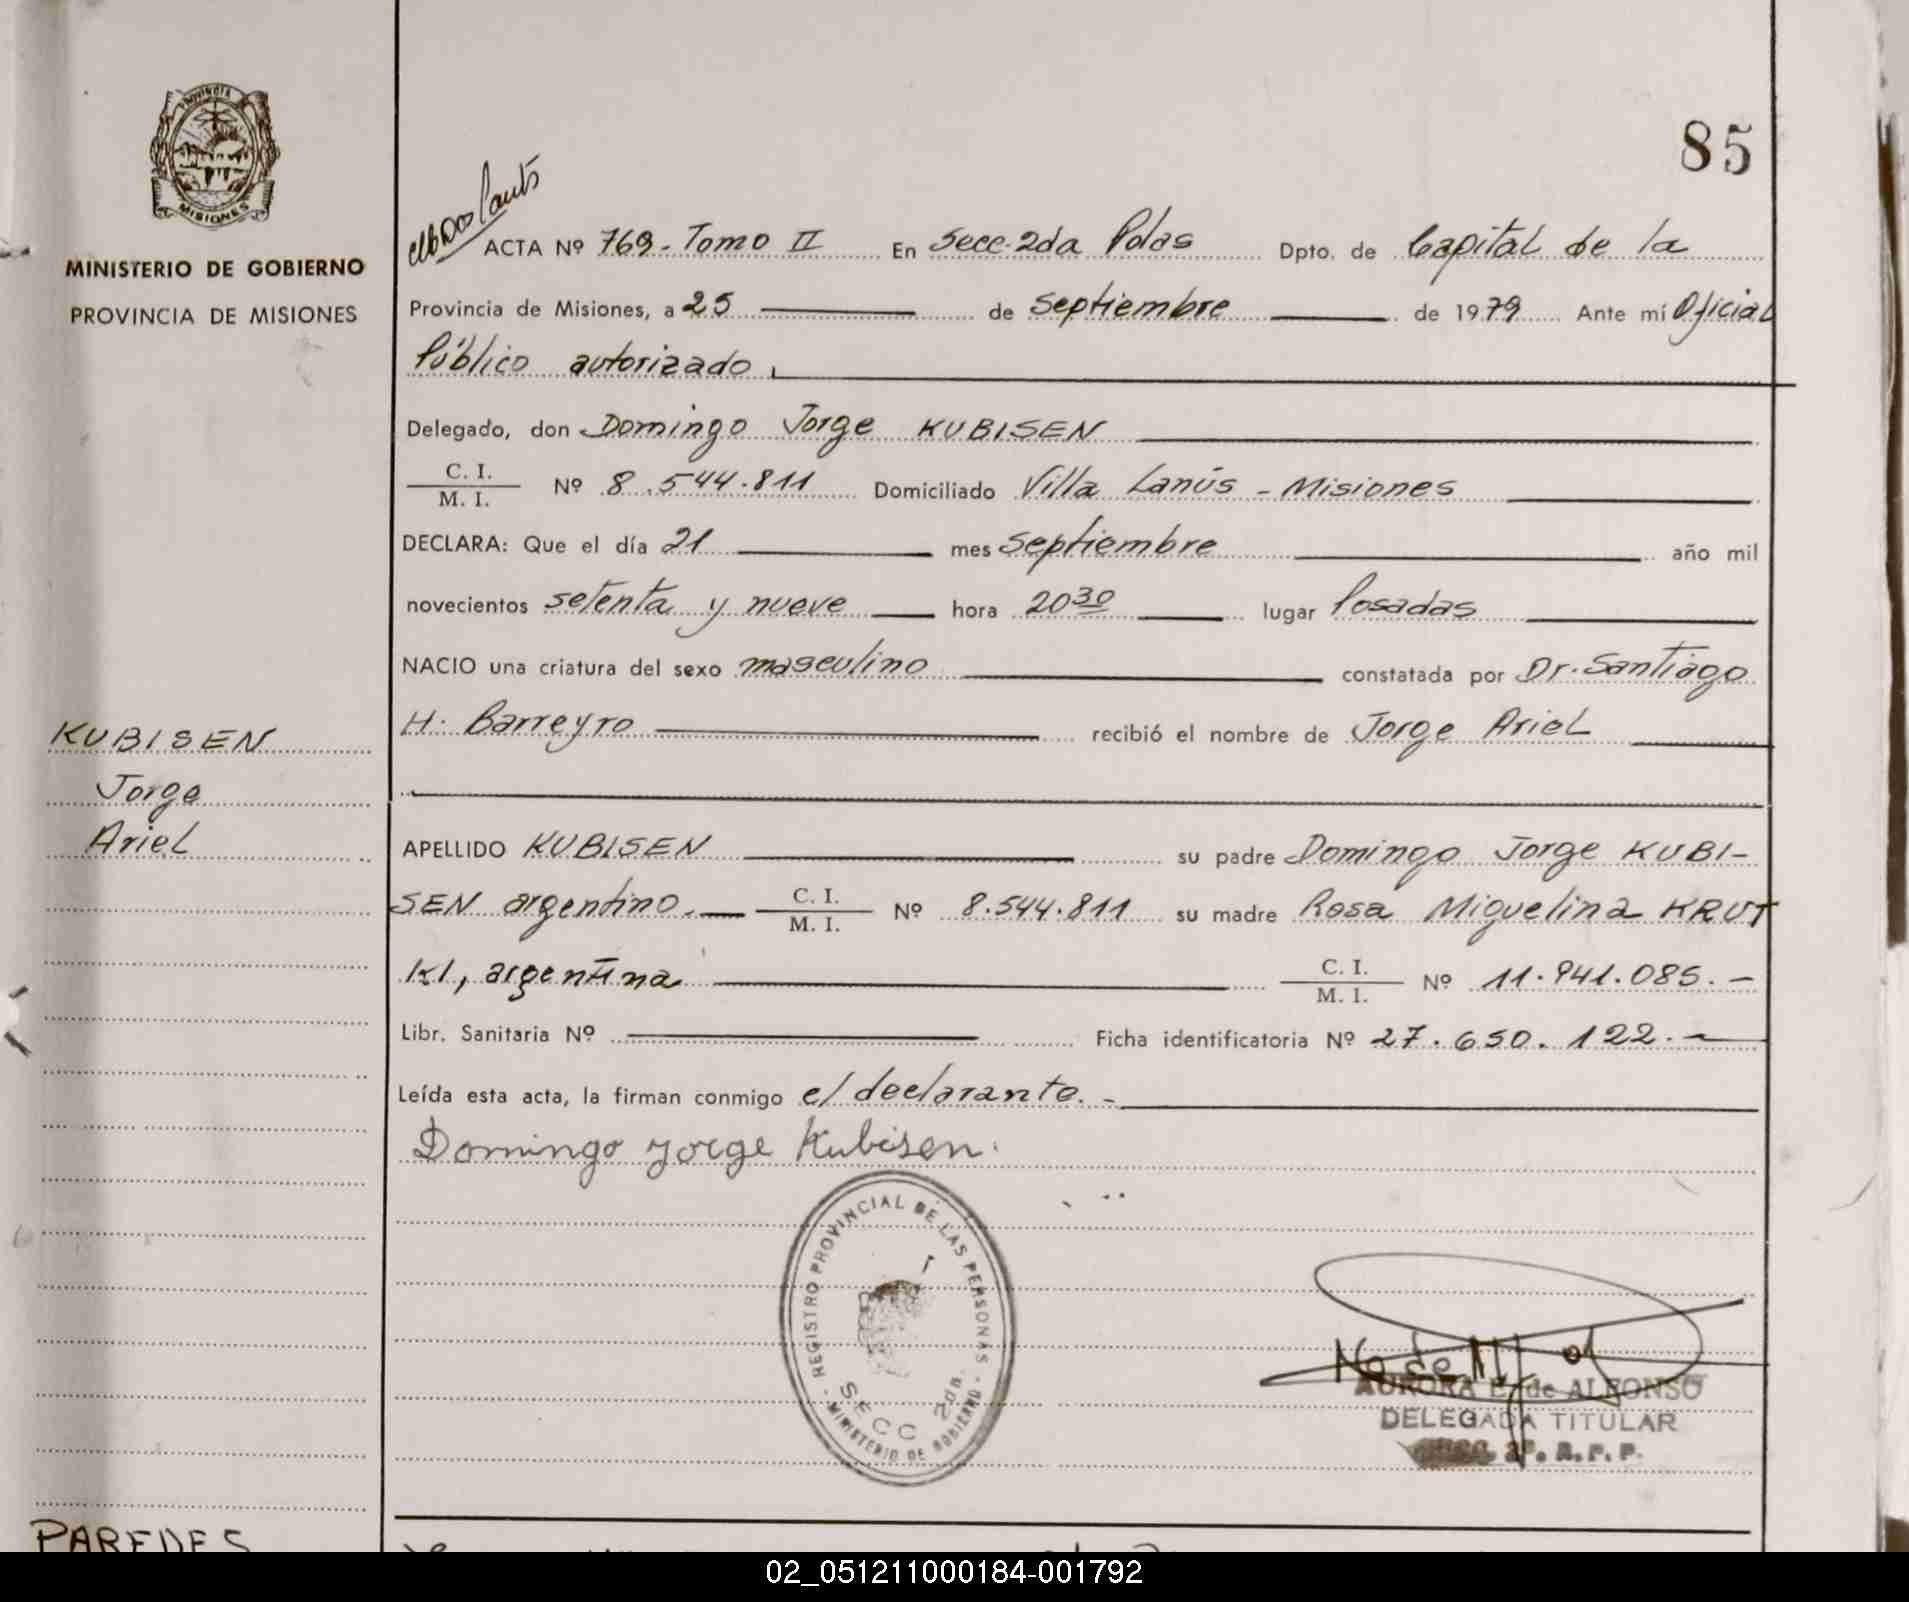 PROVINCIA
MISIONES
MINISTERIO DE GOBIERNO
PROVINCIA DE MISIONES
85
ACTA Nº 769 - Tomo II En Secc. 2da Pdas Dpto. de Capital de la
Provincia de Misiones, a 25 de Septiembre de 1979 Ante mí Oficial
Público autorizado,
Delegado, don Domingo Jorge KUBISEN
C. I.
M. I. Nº 8.544.811 Domiciliado Villa Lanús - Misiones
DECLARA: Que el día 21 mes Septiembre año mil
novecientos setenta y nueve hora 20 30 lugar Posadas
NACIO una criatura del sexo masculino constatada por Dr. Santiago
H. Barreyro recibió el nombre de Jorge Ariel
KUBISEN
Jorge
Ariel
APELLIDO KUBISEN su padre Domingo Jorge KUBI-
SEN argentino. C. I. M. I. Nº 8.544.811 su madre Rosa Miguelina KRUT
KI, argentina C. I. M. I. Nº 11.941.085. -
Libr. Sanitaria Nº Ficha identificatoria Nº 27.650.122. -
Leída esta acta, la firman conmigo el declarante. -
Domingo Jorge Kubisen.
REGISTRO PROVINCIAL DE LAS PERSONAS
SECC 2da.
MINISTERIO DE GOBIERNO
AURORA E. de ALFONSO
DELEGADA TITULAR
R. P. P.
PAREDES
02_051211000184-001792